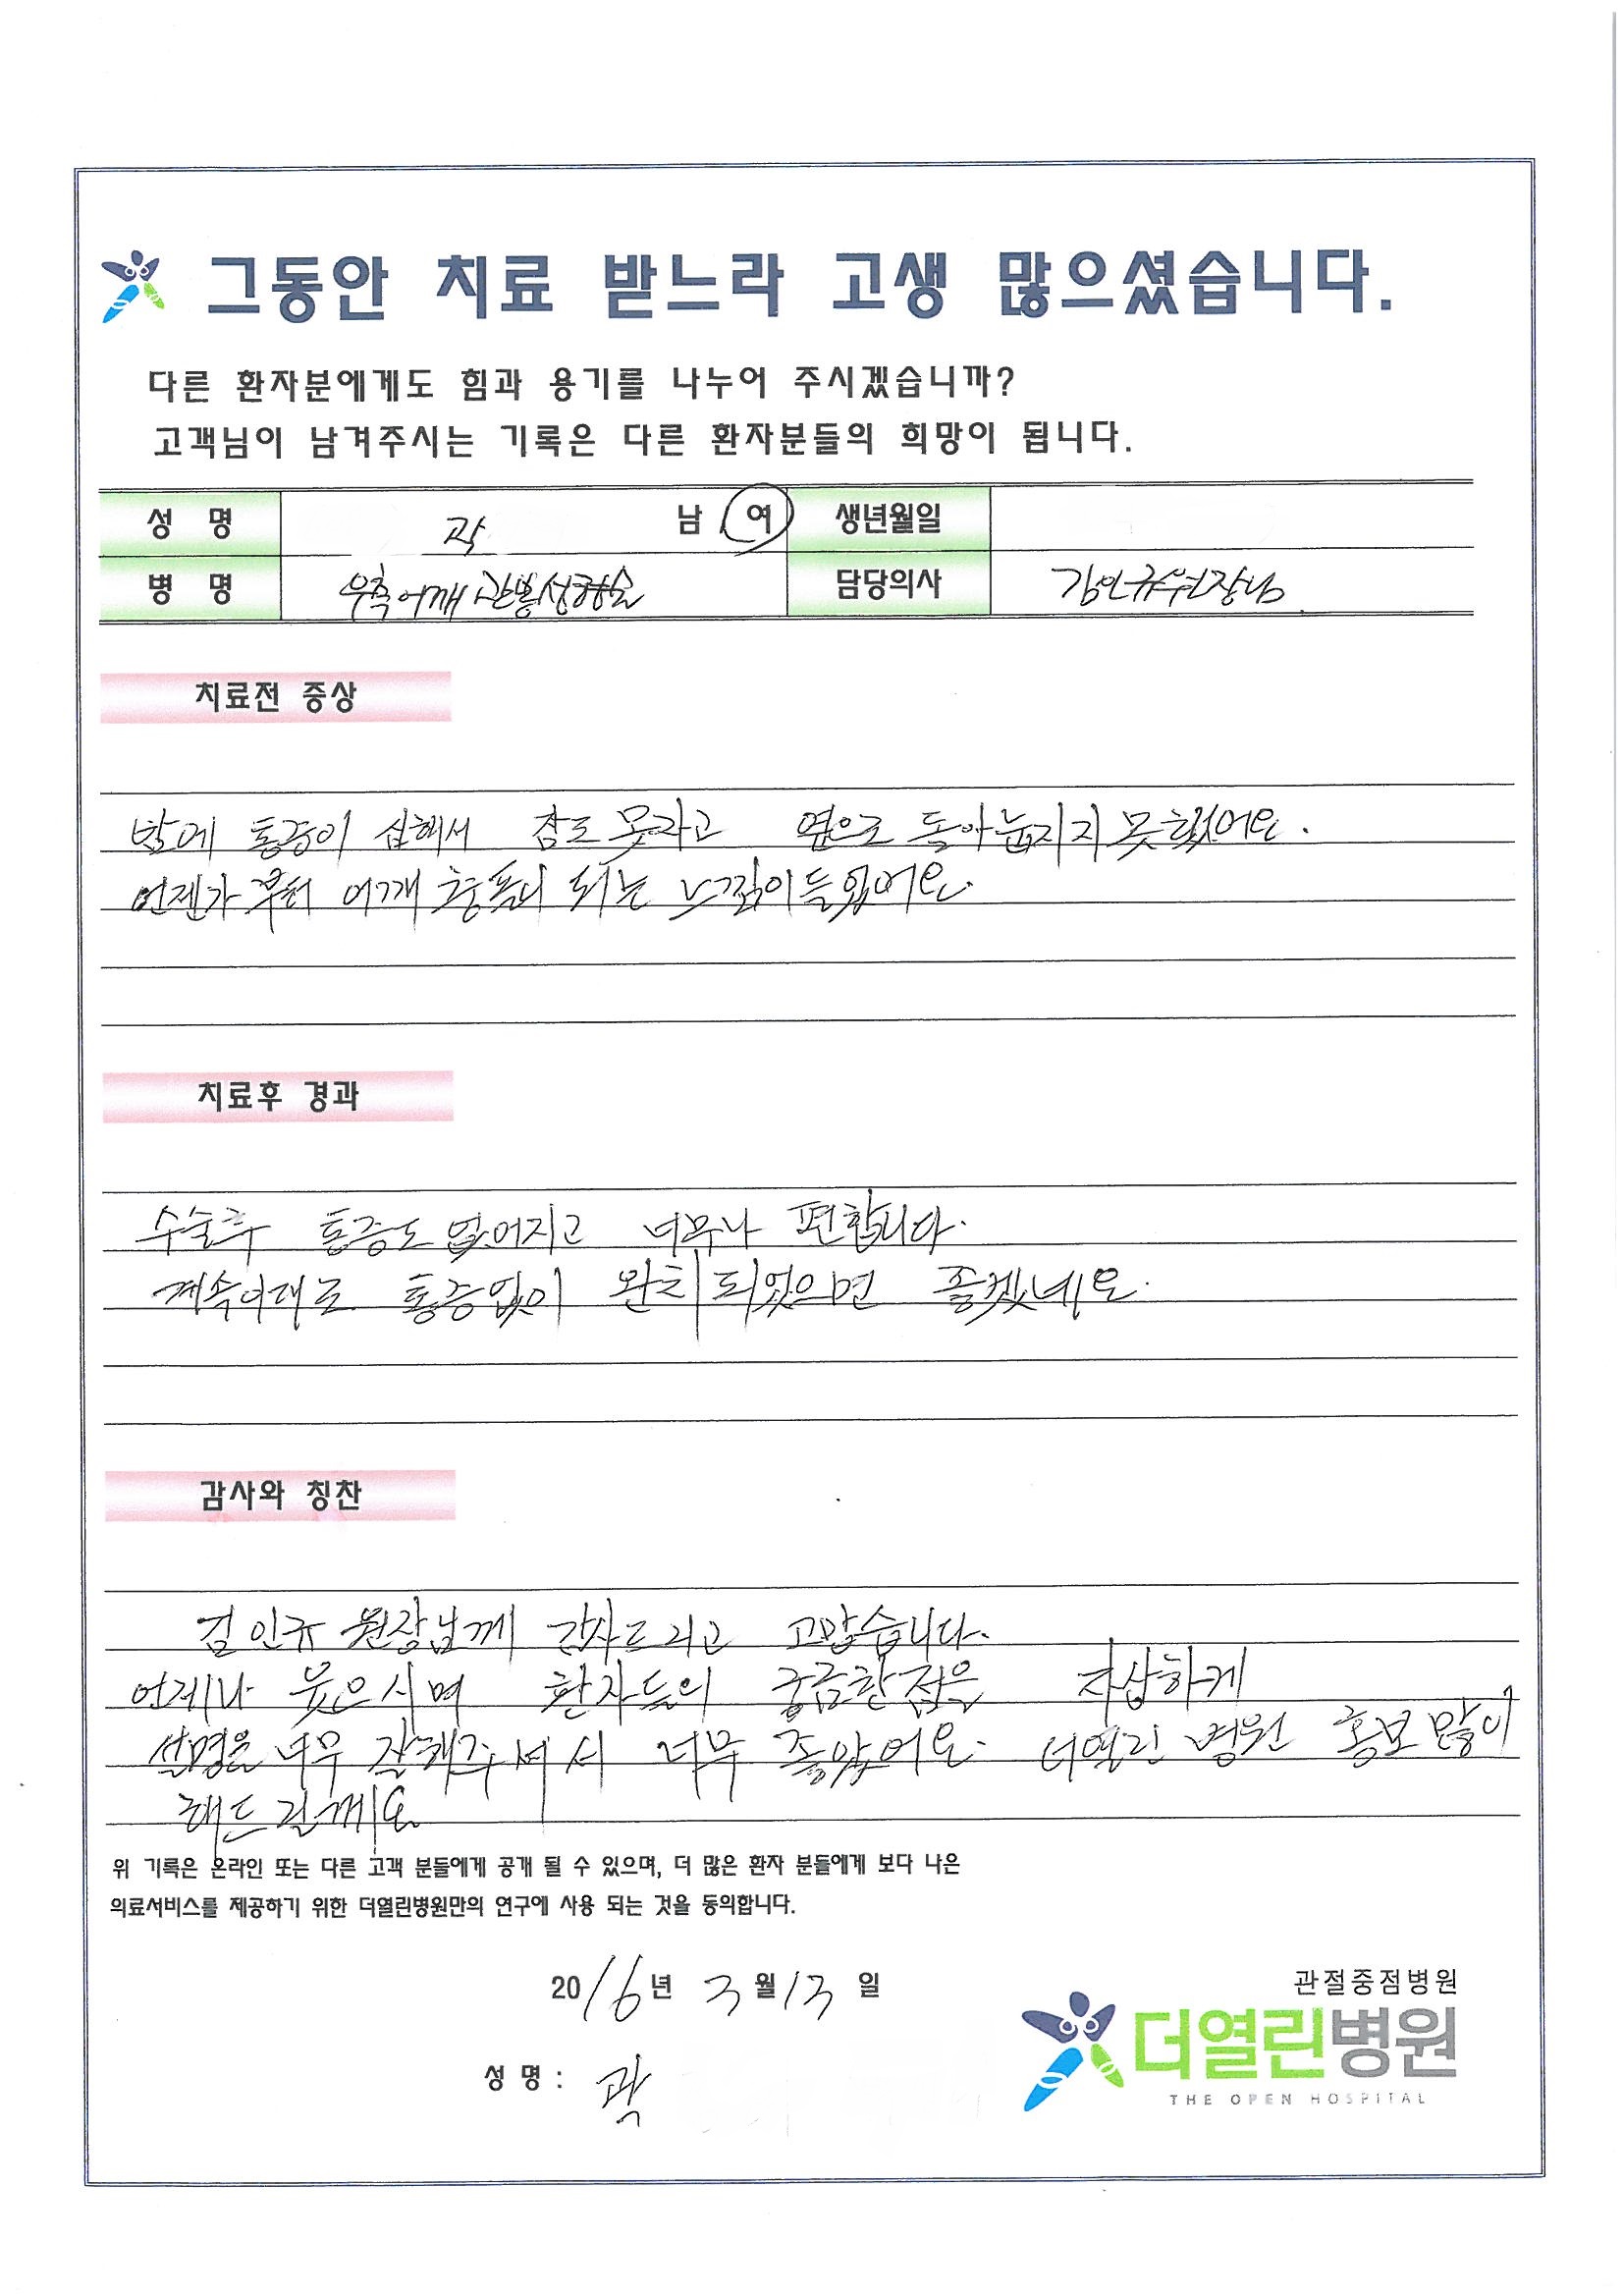 그동안 치료 받느라 고생 많으셨습니다.
다른 환자분에게도 힘과 용기를 나누어 주시겠습니까?
고객님이 남겨주시는 기록은 다른 환자분들의 희망이 됩니다.
성 명 곽 남 여 생년월일
병 명 우측어깨 견봉성형술 담당의사 김인규원장님
치료전 증상
밤에 통증이 심해서 잠도 못자고 옆으로 돌아눕지지 못했어요.
언젠가 부터 어깨 충돌이 되는 느낌이 들었어요.
치료후 경과
수술후 통증도 없어지고 너무나 편합니다.
계속이대로 통증없이 완치 되었으면 좋겠네요.
감사와 칭찬
김인규 원장님께 감사드리고 고맙습니다.
언제나 웃으시며 환자들의 궁금한점을 자상하게
설명을 너무 잘해주셔서 너무 좋았어요. 더열린 병원 홍보 많이
해드릴께요.
위 기록은 온라인 또는 다른 고객 분들에게 공개 될 수 있으며, 더 많은 환자 분들에게 보다 나은
의료서비스를 제공하기 위한 더열린병원만의 연구에 사용 되는 것을 동의합니다.
2016년 3월 13일
성 명 : 곽
관절중점병원
더열린병원
THE OPEN HOSPITAL